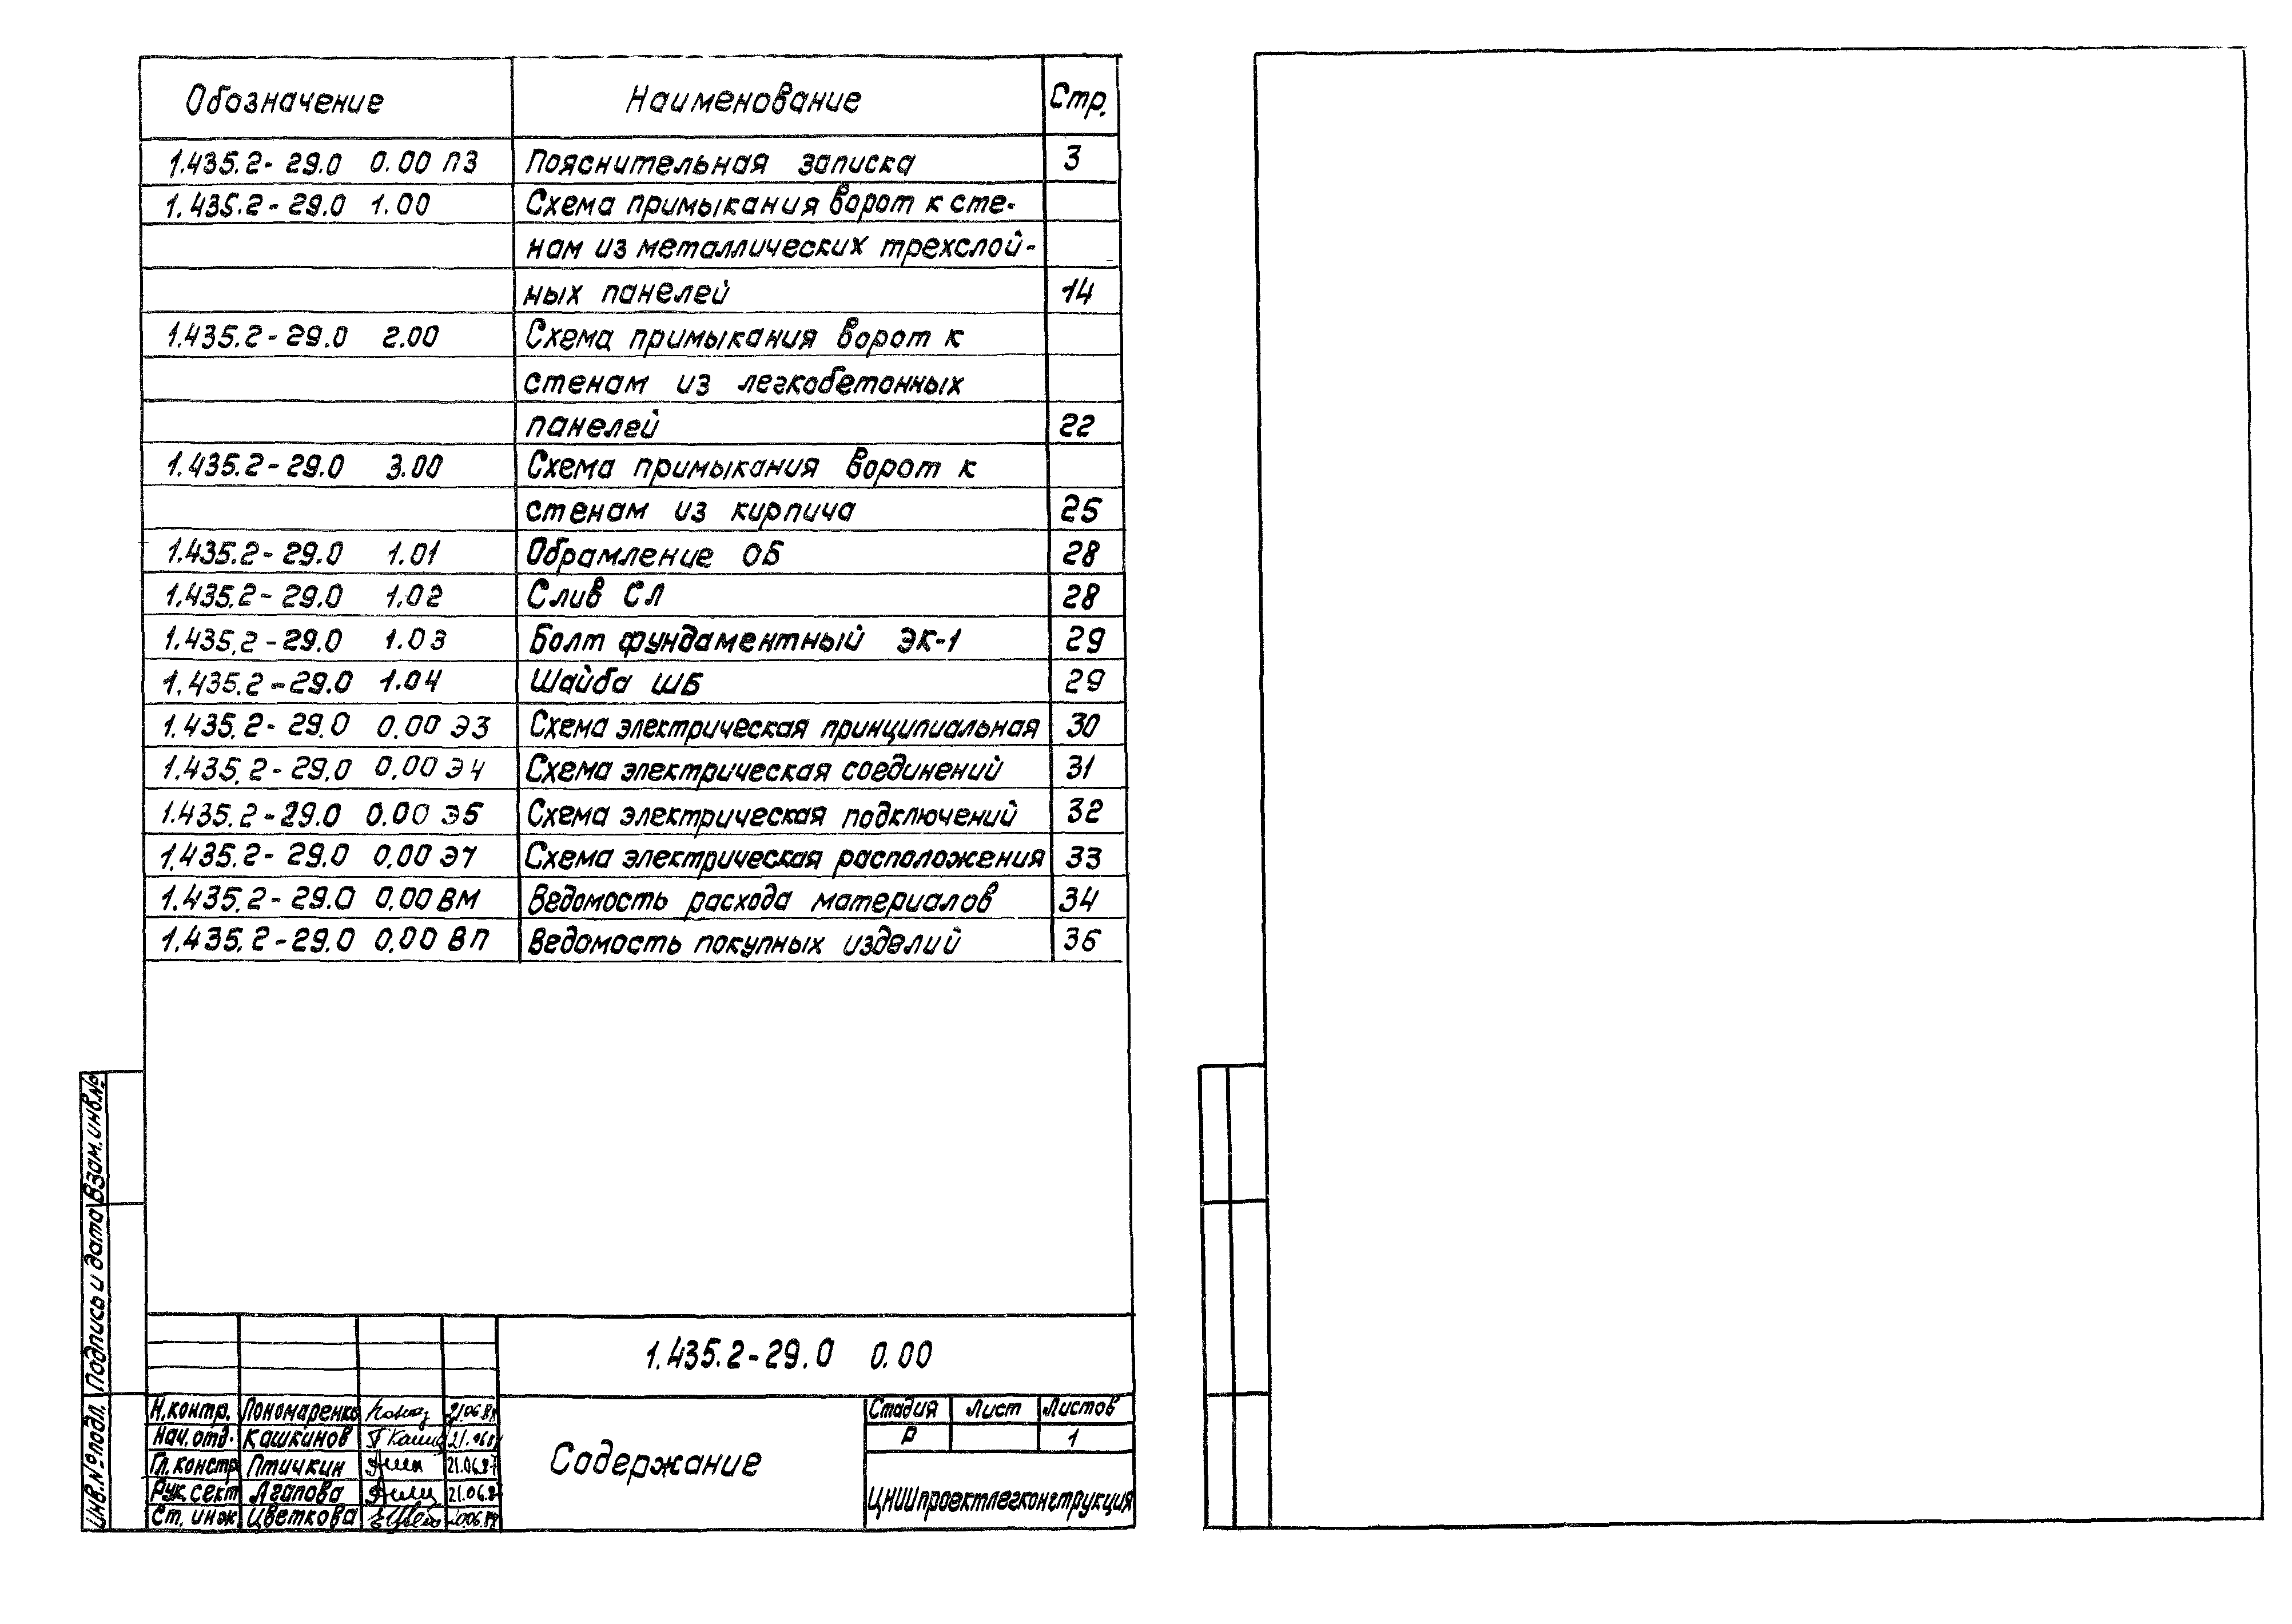 Обозначение Наименование Стр.
1.435.2-29.0 0.00 ПЗ Пояснительная записка 3
1.435.2-29.0 1.00 Схема примыкания ворот к сте-
нам из металлических трехслой-
ных панелей 14
1.435.2-29.0 2.00 Схема примыкания ворот к
стенам из легкобетонных
панелей 22
1.435.2-29.0 3.00 Схема примыкания ворот к
стенам из кирпича 25
1.435.2-29.0 1.01 Обрамление ОБ 28
1.435.2-29.0 1.02 Слив СЛ 28
1.435.2-29.0 1.03 Болт фундаментный ЭК-1 29
1.435.2-29.0 1.04 Шайба ШБ 29
1.435.2-29.0 0.00 Э3 Схема электрическая принципиальная 30
1.435.2-29.0 0.00 Э4 Схема электрическая соединений 31
1.435.2-29.0 0.00 Э5 Схема электрическая подключений 32
1.435.2-29.0 0.00 Э7 Схема электрическая расположения 33
1.435.2-29.0 0.00 ВМ Ведомость расхода материалов 34
1.435.2-29.0 0.00 ВП Ведомость покупных изделий 36
Взам. инв.№
Подпись и дата
Инв.№ подл.
1.435.2-29.0 0.00
Н.контр. Пономаренко
Нач.отд. Кашкинов
Гл.констр Птичкин
Рук.сект Агапова
Ст. инж Цветкова
Содержание
Стадия Лист Листов
Р 1
ЦНИИпроектлегконструкция